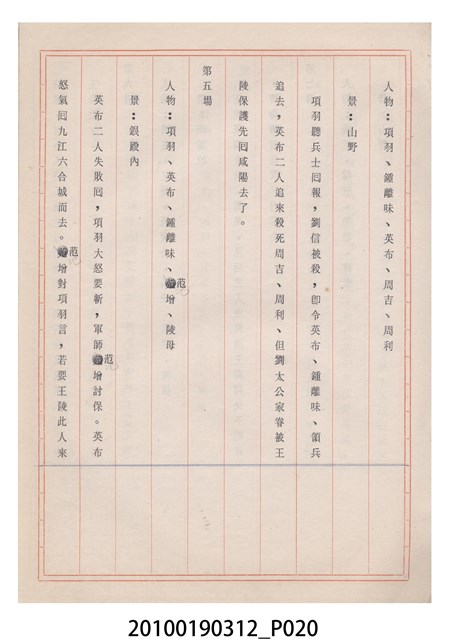 人物：項羽、鍾離味、英布、周吉、周利
景：山野
項羽聽兵士囘報，劉信被殺，卽令英布、鍾離味、領兵
追去，英布二人追來殺死周吉、周利、但劉太公家眷被王
陵保護先囘咸陽去了。
第五場
人物：項羽、英布、鍾離味、范增、陵母
景：銀殿內
英布二人失敗囘，項羽大怒要斬，軍師范增討保。英布
怒氣囘九江六合城而去。范增對項羽言，若要王陵此人來
20100190312_P020